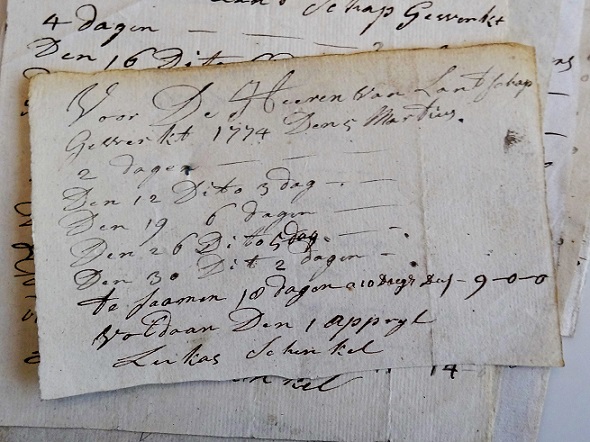 Schap Gewerkt
4 dagen — — —
Den 16 Dito 6
Voor De Heeren van Lantschap
Gewerkt 1774 Den 5 Martius.
2 dagen — — —
Den 12 Dito 3 dag - . —
Den 19 6 dagen — —
Den 26 Dito 5 dag. —
Den 30 Dit 2 dagen -
te saamen 18 dagen a 10 - 9-0-0
Voldaan Den 1 appryl
Lukas Schinkel
nkel 14-